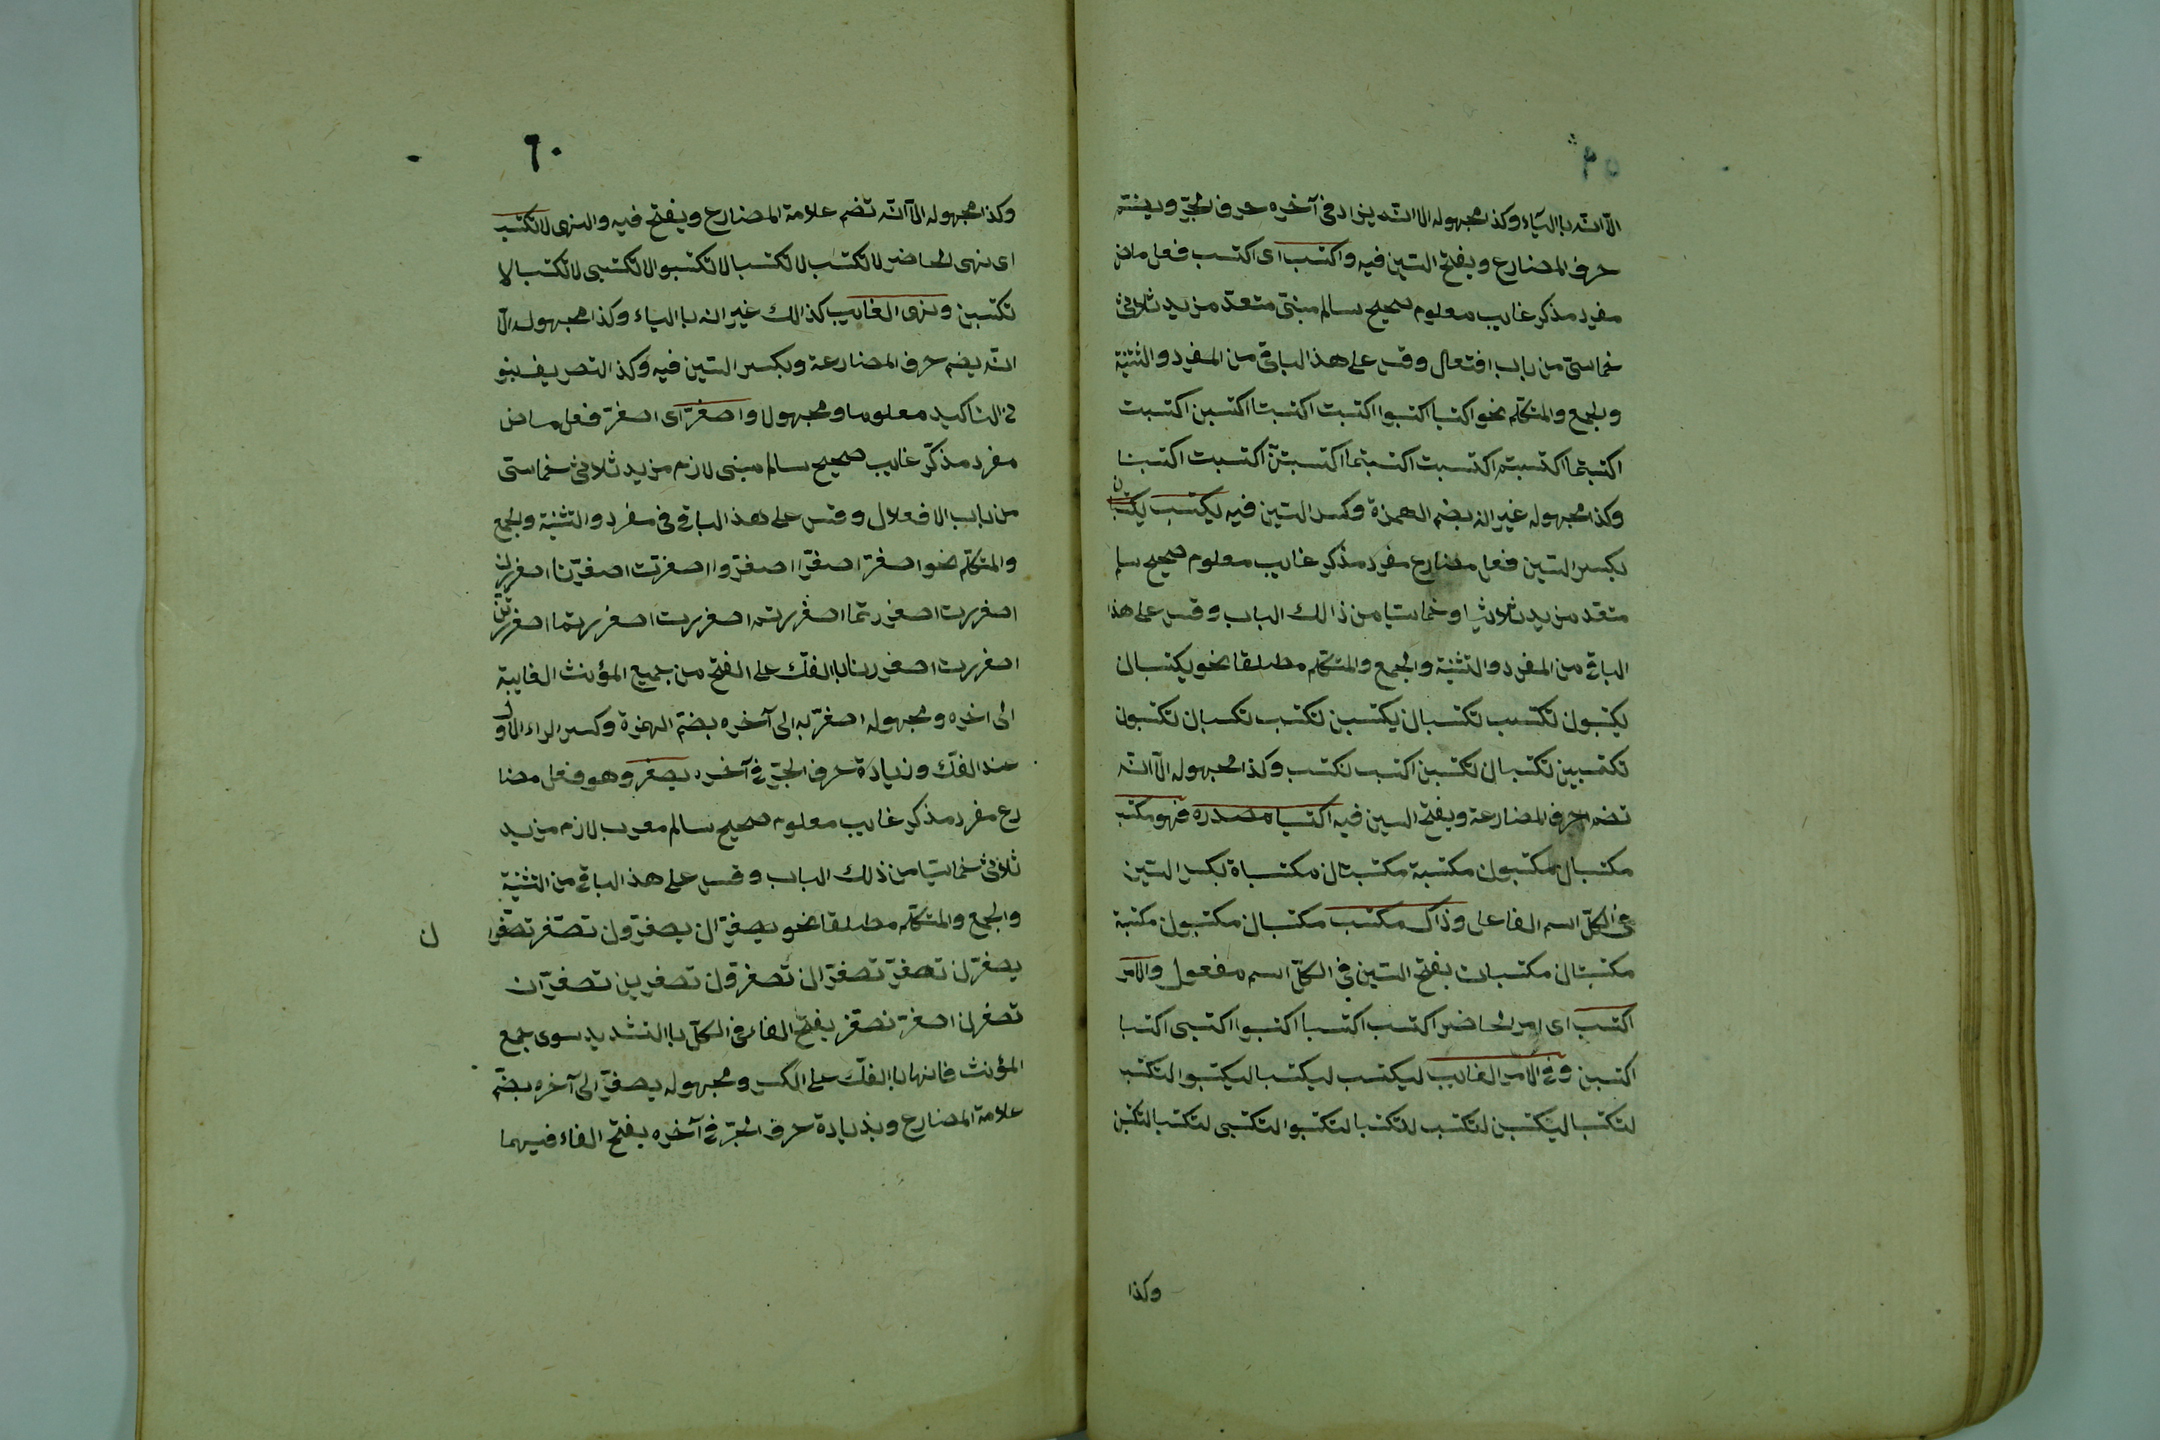 الا انه بالياء وكذا مجهوله الا انه يزاد فى آخره حرف الجر ويضم
حرف المضارع ويفتح السين فيه واكتسب اى اكتسب فعل ماض
مفرد مذكر غايب معلوم صحيح سالم مبنى متعد مزيد ثلاثى
خماسى من باب افتعال وقس على هذا الباقى من المفرد والتثنية
والجمع والمتكلم نحو اكتسبا اكتسبوا اكتسبت اكتسبتا اكتسبن اكتسبت
اكتسبتما اكتسبتم اكتسبت اكتسبتما اكتسبتن اكتسبت اكتسبنا
وكذا مجهوله غير انه بضم الهمزة وكسر السين فيه يكتسب
بكسر السين فعل مضارع مفرد مذكر غايب معلوم صحيح سالم
متعد مزيد ثلاثيا وخماسيا من ذالك الباب وقس على هذا
الباقى من المفرد والتثنية والجمع والمتكلم مطلقا نحو يكتسبان
يكتسبون تكتسب تكتسبان يكتسبن تكتسب تكتسبان تكتسبون
تكتسبين تكتسبان تكتسبن اكتسب نكتسب وكذا مجهوله الا انه
تضم حرف المضارعة ويفتح السين فيه اكتسابا مصدره فهو مكتسب
مكتسبان مكتسبون مكتسبة مكتسبتان مكتسباة بكسر السين
فى الكل اسم الفاعل وذاك مكتسب مكتسبان مكتسبون مكتسبة
مكتسبتان مكتسبات بفتح السين فى الكل اسم مفعول والامر
اكتسب اى امر الحاضر اكتسب اكتسبا اكتسبوا اكتسبى اكتسبا
اكتسبن وفى الامر الغايب ليكتسب ليكتسبا ليكتسبوا لتكتسب
لتكتسبا ليكتسبن لتكتسب لتكتسبا لتكتسبوا لتكتسبى لتكتسبا لتكتسبن
وكذا
٦٠
وكذا مجهوله الا انه تضم علامة المضارع ويفتح فيه والنهى لا تكتسب
اى نهى الحاضر لا تكتسب لا تكتسبا لا تكتسبوا لا تكتسبى لا تكتسبا لا
تكتسبن ونهى الغايب كذالك غير انه بالياء وكذا مجهوله الا
انه يضم حرف المضارعة وبكسر السين فيه وكذا التصريف بنو
ن التاكيد معلوما ومجهولا واصفر اى اصفر فعل ماض
مفرد مذكر غايب صحيح سالم مبنى لازم مزيد ثلاثى خماسى
من باب الافعلال وقس على هذا الباقى فى مفرد والتثنية والجمع
والمتكلم نحو اصفر اصفرا اصفروا اصفرت اصفرتا اصفررن
اصفررت اصفررتما اصفررتم اصفررت اصفررتما اصفررتن
اصفررت اصفررنا بالفك على الفتح من جميع المؤنث الغايبة
الى اخره ومجهوله اصفر به الى آخره بضم الهمزة وكسر الراء الاول
عند الفك وزيادة حرف الجر فى آخره يصفر وهو فعل مضا
رع مفرد مذكر غايب معلوم صحيح سالم معرب لازم مزيد
ثلاثى خماسيا من ذلك الباب وقس على هذا الباقى من التثنية
والجمع والمتكلم مطلقا نحو يصفران يصفرون تصفر تصفرا
ن
يصفررن تصفر تصفران تصفرون تصفرين تصفران
تصفررن اصفر نصفر بفتح الفاء فى الكل بالتشديد سوى جمع
المؤنث فانها بالفك على الكسر ومجهوله يصفر الى آخره بضم
علامة المضارع وبزيادة حرف الجر فى آخره بفتح الفاء فيهما